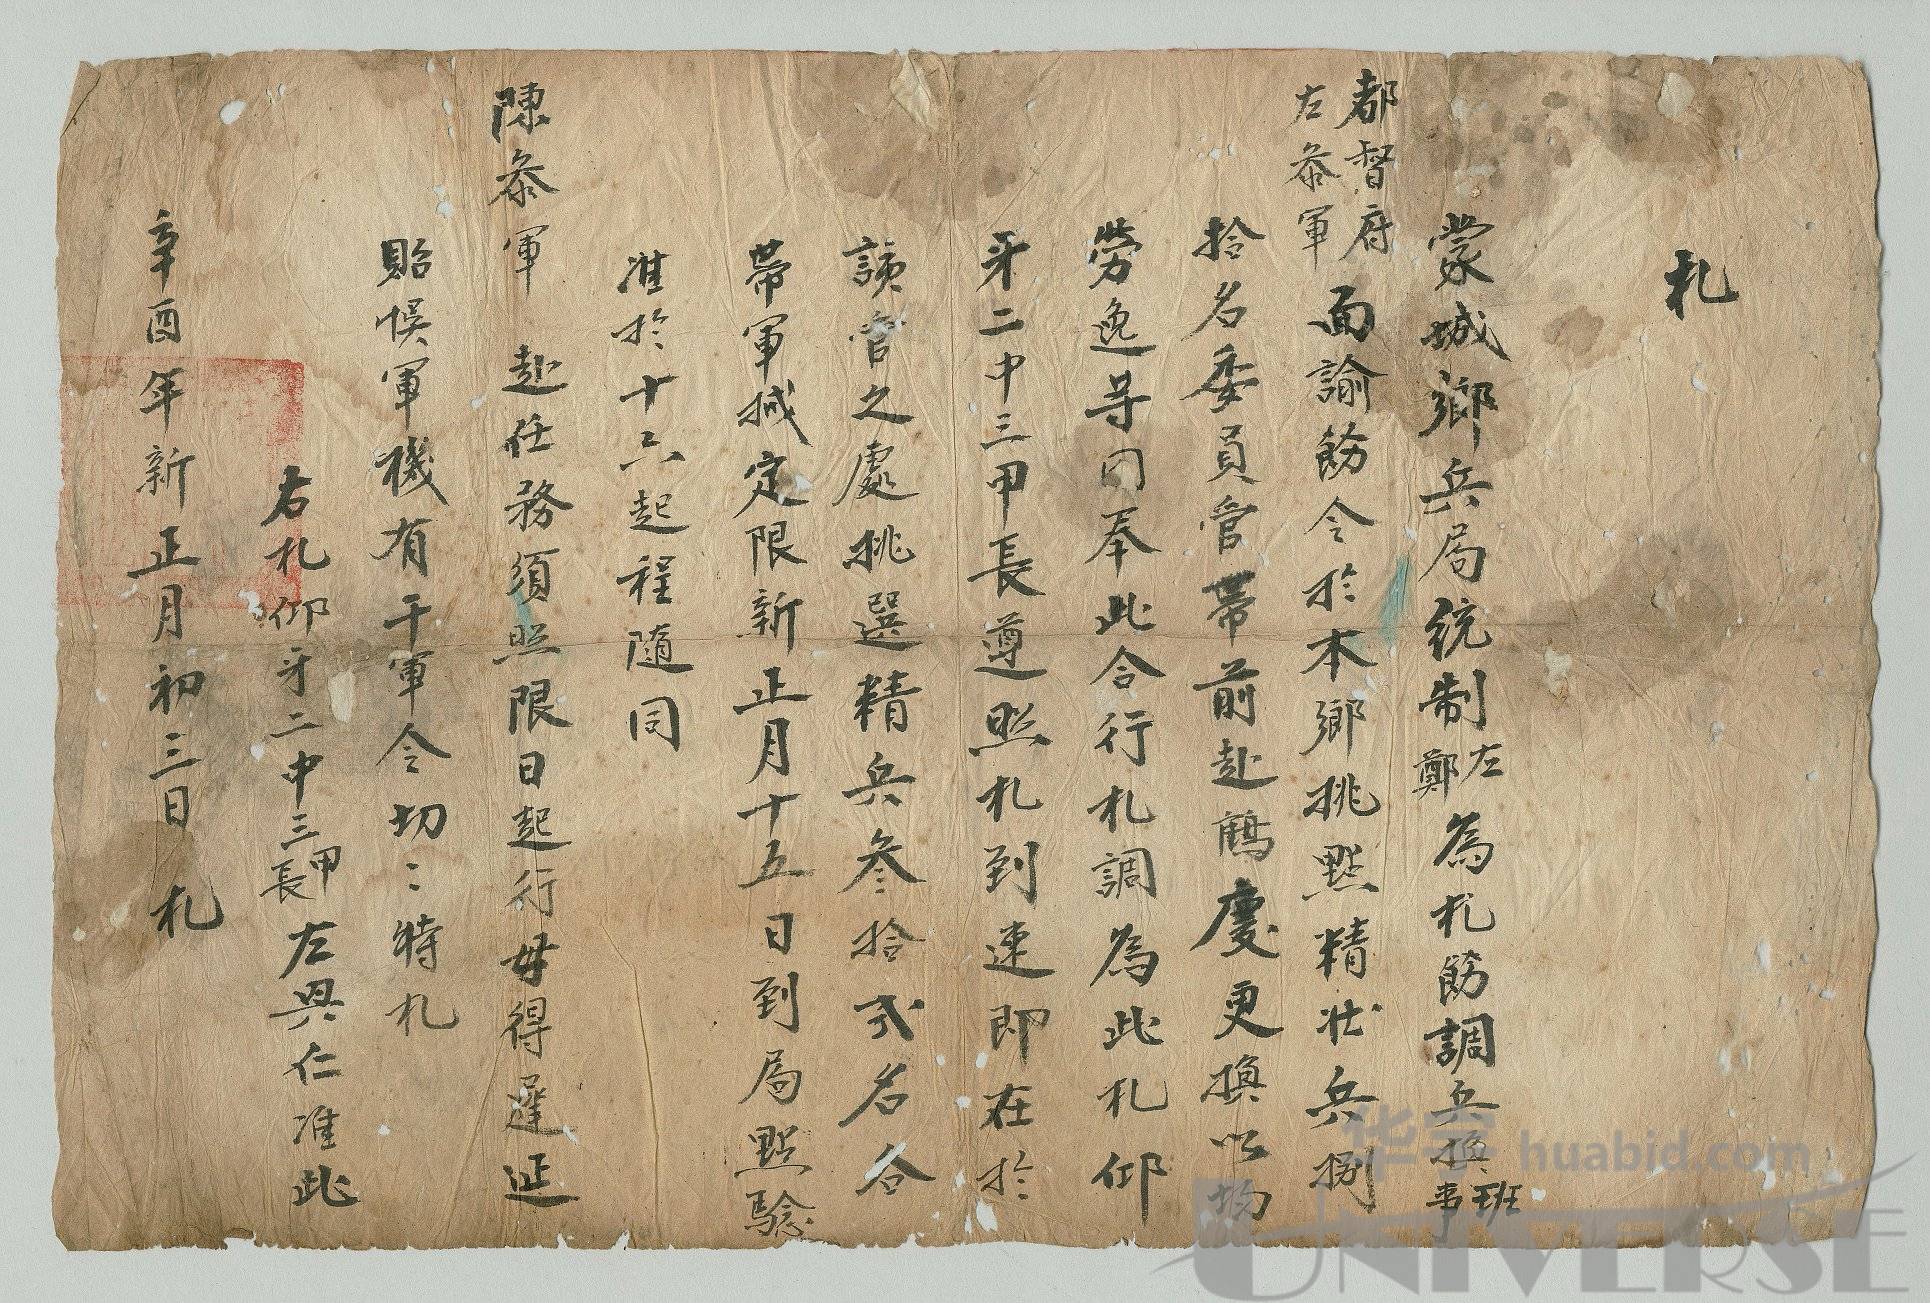 札
蒙城鄉兵局統制左鄭為札飭調兵換班事
都督府左叅軍面諭飭令於本鄉挑點精壯兵捌
拾名委員管帶前赴鶴慶更換以均
勞逸等因奉此合行札調為此札仰
牙二中三甲長遵照札到速即在於
該管之處挑選精兵叄拾弍名合
帶軍械定限新正月十五日到局點驗
准於十六起程隨同
陳叅軍赴任務須照限日起行毋得遲延
貽悮軍機有干軍令切〻特札
右札仰牙二中三甲長左興仁准此
辛酉年新正月初三日札
华宇 huabid.com
UNIVERSE